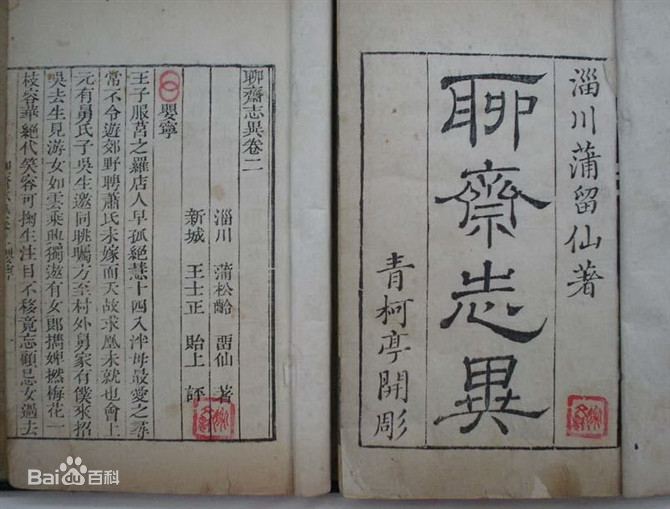 淄川蒲留仙著
聊齋志異
青柯亭開彫
聊齋志異卷二
淄川 蒲松齡 畱仙 著
新城 王士正 貽上 評
嬰寧
王子服莒之羅店人早孤絕慧十四入泮母最愛之尋
常不令遊郊野聘蕭氏未嫁而夭故求凰未就也會上
元有舅氏子吳生邀同眺矚方至村外舅家有僕來招
吳去生見游女如雲乘興獨遨有女郎攜婢撚梅花一
枝容華絕代笑容可掬生注目不移竟忘顧忌女過去
Bai百科